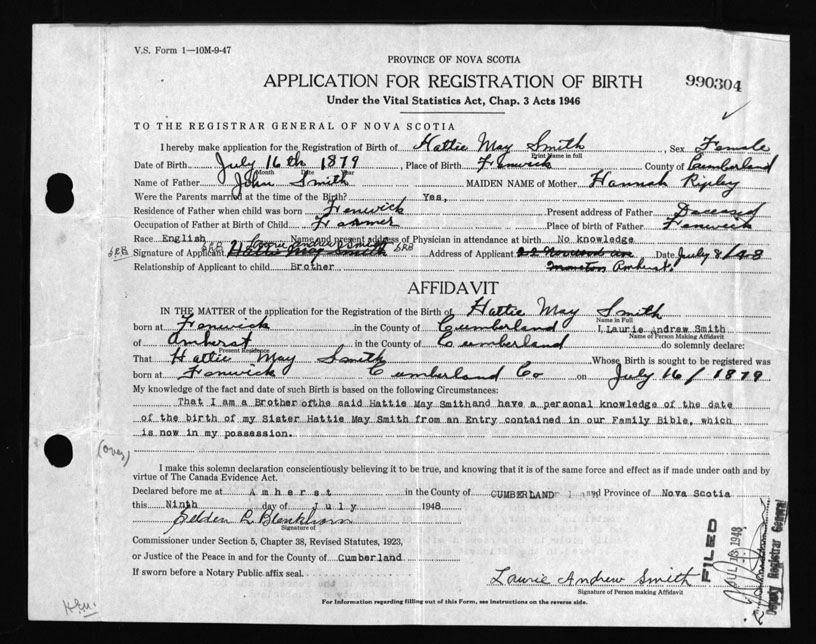 V.S. Form 1—10M-9-47
PROVINCE OF NOVA SCOTIA
APPLICATION FOR REGISTRATION OF BIRTH
990304
Under the Vital Statistics Act, Chap. 3 Acts 1946
TO THE REGISTRAR GENERAL OF NOVA SCOTIA
I hereby make application for the Registration of Birth of Hattie May Smith, Sex Female
Print Name in full
Date of Birth July 16th 1879, Place of Birth Fenwick County of Cumberland
Month Date Year
Name of Father John Smith MAIDEN NAME of Mother Hannah Ripley
Were the Parents married at the time of the Birth? Yes,
Residence of Father when child was born Fenwick Present address of Father Deceased
Occupation of Father at Birth of Child Farmer Place of birth of Father Fenwick
Race English Name and present address of Physician in attendance at birth No knowledge
Signature of Applicant Hattie May Smith Address of Applicant Date July 8/48
Amherst.
Relationship of Applicant to child Brother
AFFIDAVIT
IN THE MATTER of the application for the Registration of the Birth of Hattie May Smith
Name in Full
born at Fenwick in the County of Cumberland I, Laurie Andrew Smith
Name of Person Making Affidavit
of Amherst in the County of Cumberland do solemnly declare:
Present Residence
That Hattie May Smith Whose Birth is sought to be registered was
born at Fenwick Cumberland Co on July 16/1879
My knowledge of the fact and date of such Birth is based on the following Circumstances:
That I am a Brother ofthe said Hattie May Smithand have a personal knowledge of the date
of the birth of my Sister Hattie May Smith from an Entry contained in our Family Bible, which
is now in my possession.
(over)
I make this solemn declaration conscientiously believing it to be true, and knowing that it is of the same force and effect as if made under oath and by
virtue of The Canada Evidence Act.
Declared before me at Amherst in the County of CUMBERLAND and Province of Nova Scotia
this Ninth day of July 1948
Selden L Blenkhorn
Signature of
Commissioner under Section 5, Chapter 38, Revised Statutes, 1923,
or Justice of the Peace in and for the County of Cumberland
If sworn before a Notary Public affix seal.
Laurie Andrew Smith
Signature of Person making Affidavit
FILED
1948
Deputy Registrar General
For Information regarding filling out of this Form, see instructions on the reverse side.